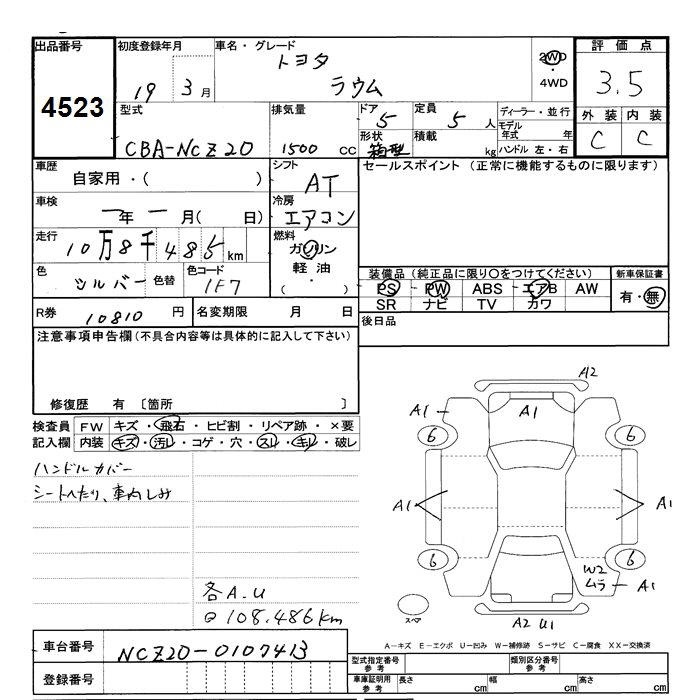 出品番号
4523
初度登録年月
19 3 月
車名・グレード
トヨタ
ラウム
2WD
・
4WD
評価点
3.5
外装 内装
C C
型式
CBA-NCZ20
排気量
1500 cc
ドア
5
形状
箱型
定員
5 人
積載
kg
ディーラー・並行
モデル
年式 年
ハンドル 左・右
車歴
自家用・( )
シフト
AT
セールスポイント (正常に機能するものに限ります)
車検
一年 一月( 日)
冷房
エアコン
走行
10万8千485km
燃料
ガソリン
軽油・
( )
色
シルバー
色替
色コード
1F7
装備品(純正品に限り○をつけてください)
PS PW ABS エアB AW
SR ナビ TV カワ
新車保証書
有・無
R券
10810 円
名変期限 月 日
後日品
注意事項申告欄(不具合内容等は具体的に記入して下さい)
修復歴 有 〔箇所 〕
検査員 FW キズ・飛石・ヒビ割・リペア跡・×要
記入欄 内装 キズ・汚レ・コゲ・穴・スレ・キレ・破レ
ハンドルカバー
シートへたり、車内しみ
各A.U
@ 108.486km
A2
A1 A1
6 6
A1 A1
6 6
W2
ムラ A1
スペア
A2 U1
A-キズ E-エクボ U-凹み W-補修跡 S-サビ C-腐食 XX-交換済
車台番号
NCZ20-0107413
登録番号
型式指定番号
参考
類別区分番号
参考
車庫証明用
参考
長さ cm 幅 cm 高さ cm